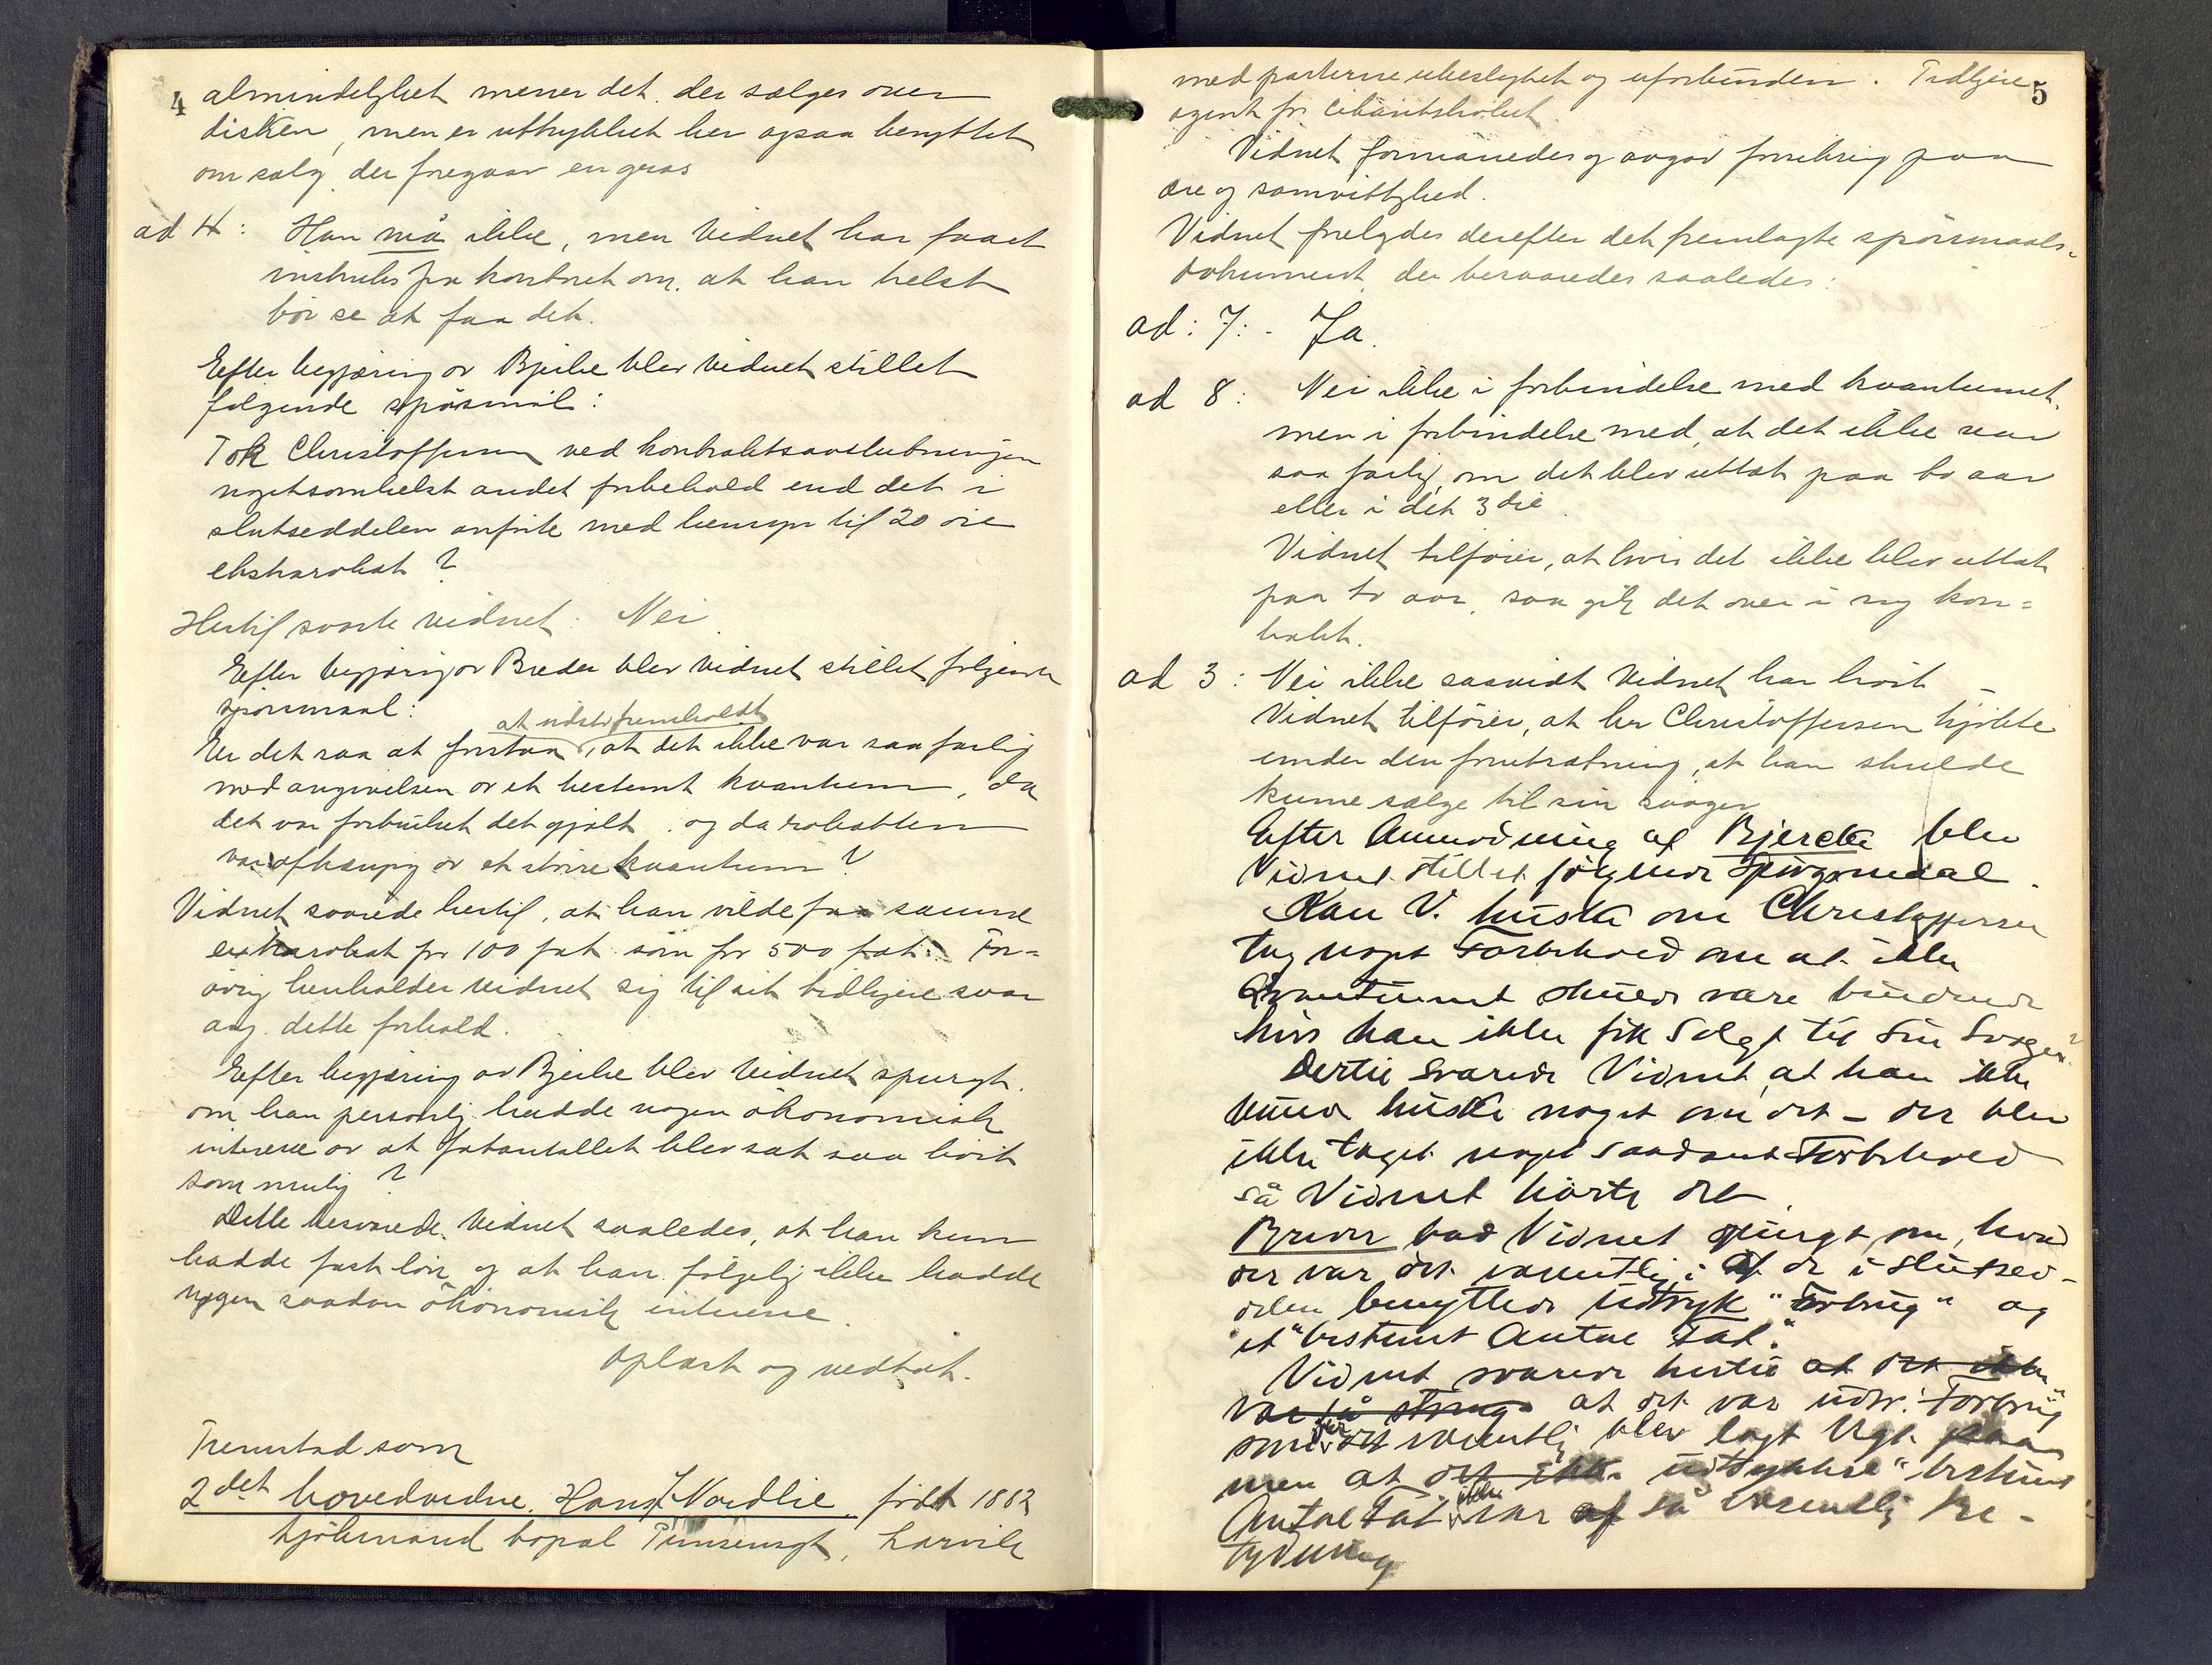 4
almindelighet mener det der sælges over
disken, men er uttrykket her ogsaa benyttet
om salg der foregaar en gros
ad 4: Han må ikke, men Vidnet har faaet
instruks fra kontoret om, at han helst
bör se at faa det.
Efter begjæring av Bjerke blev Vidnet stillet
følgende spörsmål:
Tok Christoffersen ved kontraktsavslutningen
nogetsomhelst andet forbehold end det i
slutseddelen anførte med hensyn til 20 øre
ekstrarabat?
Hertil svarte vidnet: Nei.
Efter begjæring av Breder blev Vidnet stillet følgende
spörsmaal:
at vidnet fremholdt
Er det saa at forstaa, at det ikke var saa farlig
med angivelsen av et bestemt kvantum, da
det var forbruket det gjaldt og da rabatten
var afhængig av et större kvantum?
Vidnet svarede hertil, at han vilde faa samme
extrarabat for 100 fat som for 500 fat. For=
övrig henholder vidnet sig til sit tidligere svar
ang. dette forhold.
Efter begjæring av Bjerke blev Vidnet spurgt,
om han personlig hadde nogen ökonomisk
interesse av at fatantallet blev sat saa höit
som mulig?
Dette besvarede Vidnet saaledes, at han kun
hadde fast lön og at han følgelig ikke hadde
nogen saadan ökonomisk interesse.
Oplæst og vedtat.
Fremstod som
2det hovedvidne, Hans J Nordlie født 1882
kjöbmand bopæl Larvik
5
med parterne ubeslegtet og uforbunden. Tidligere
agent for
Vidnet formanedes og avgav forsikring paa
ære og samvittighed.
Vidnet forelagdes derefter det fremlagte spörsmaals=
dokument, der besvaredes saaledes:
ad: 7: - Ja.
ad 8: Nei ikke i forbindelse med kvantumet,
men i forbindelse med, at det ikke var
saa farlig, om det blev uttat paa to aar
eller i det 3die.
Vidnet tilföier, at hvis det ikke blev uttat
paa to aar, saa gik det over i ny kon=
trakt.
ad 3: Nei ikke saavidt Vidnet har hört –
Vidnet tilföier, at hr Christoffersen kjöbte
under den forutsætning, at han skulde
kunne sælge til sin svoger
Efter Anmodning af Bjercke blev
Vidnet stillet følgende Spörgsmaal.
Kan V. huske om Christoffersen
tog noget Forbehold om at ikke
Qvantumet skulde være bindende
hvis han ikke fik Solgt til Sin Svoger?
Dertil Svarede Vidnet, at han ikke
kunde huske noget om det – der blev
ikke taget noget saadant Forbehold
så Vidnet hørte det
Breder bad Vidnet spurgt om, hvad
der var det væsentlig i af de i Slutsed-
delen benyttede Udtryk "Forbrug" og
et "bestemt Antal Fat."
Vidnet svarede hertil at det ikke
var så strengt at det var udtr. "Forbrug"
som der væsentlig blev lagt Vegt paa
men at det ikke udtrykket "bestemt
Antal Fat" ikke var af så væsentlig Be-
tydning